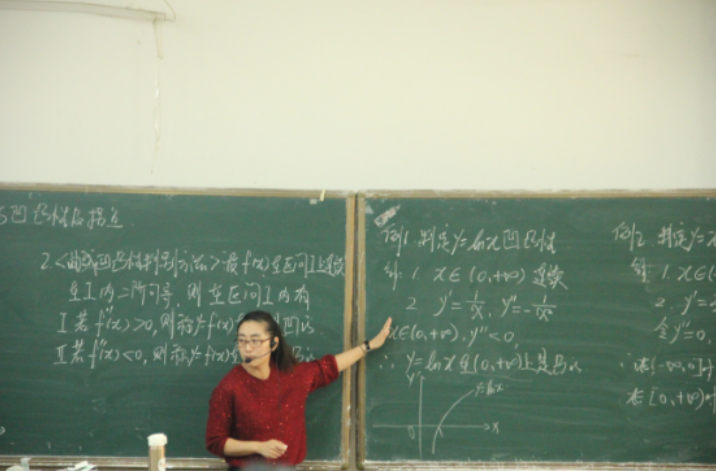 凹凸性及拐点
2.<曲线凹凸性判别方法>设f(x)在区间I上连续
在I内二阶可导，则在区间I内有
I 若f''(x)>0，则称y=f(x)
II 若f''(x)<0，则称y=f(x)
例1. 判定y=lnx凹凸性
解: 1. x∈(0,+∞) 连续
2. y'=1/x, y''=-1/x²
x∈(0,+∞), y''<0,
∴ y=lnx在(0,+∞)上是凸的
y
y=lnx
0
x
例2. 判定y=x
解: 1. x∈(
2. y'=
令y''=0,
(-∞,0]
在[0,+∞)